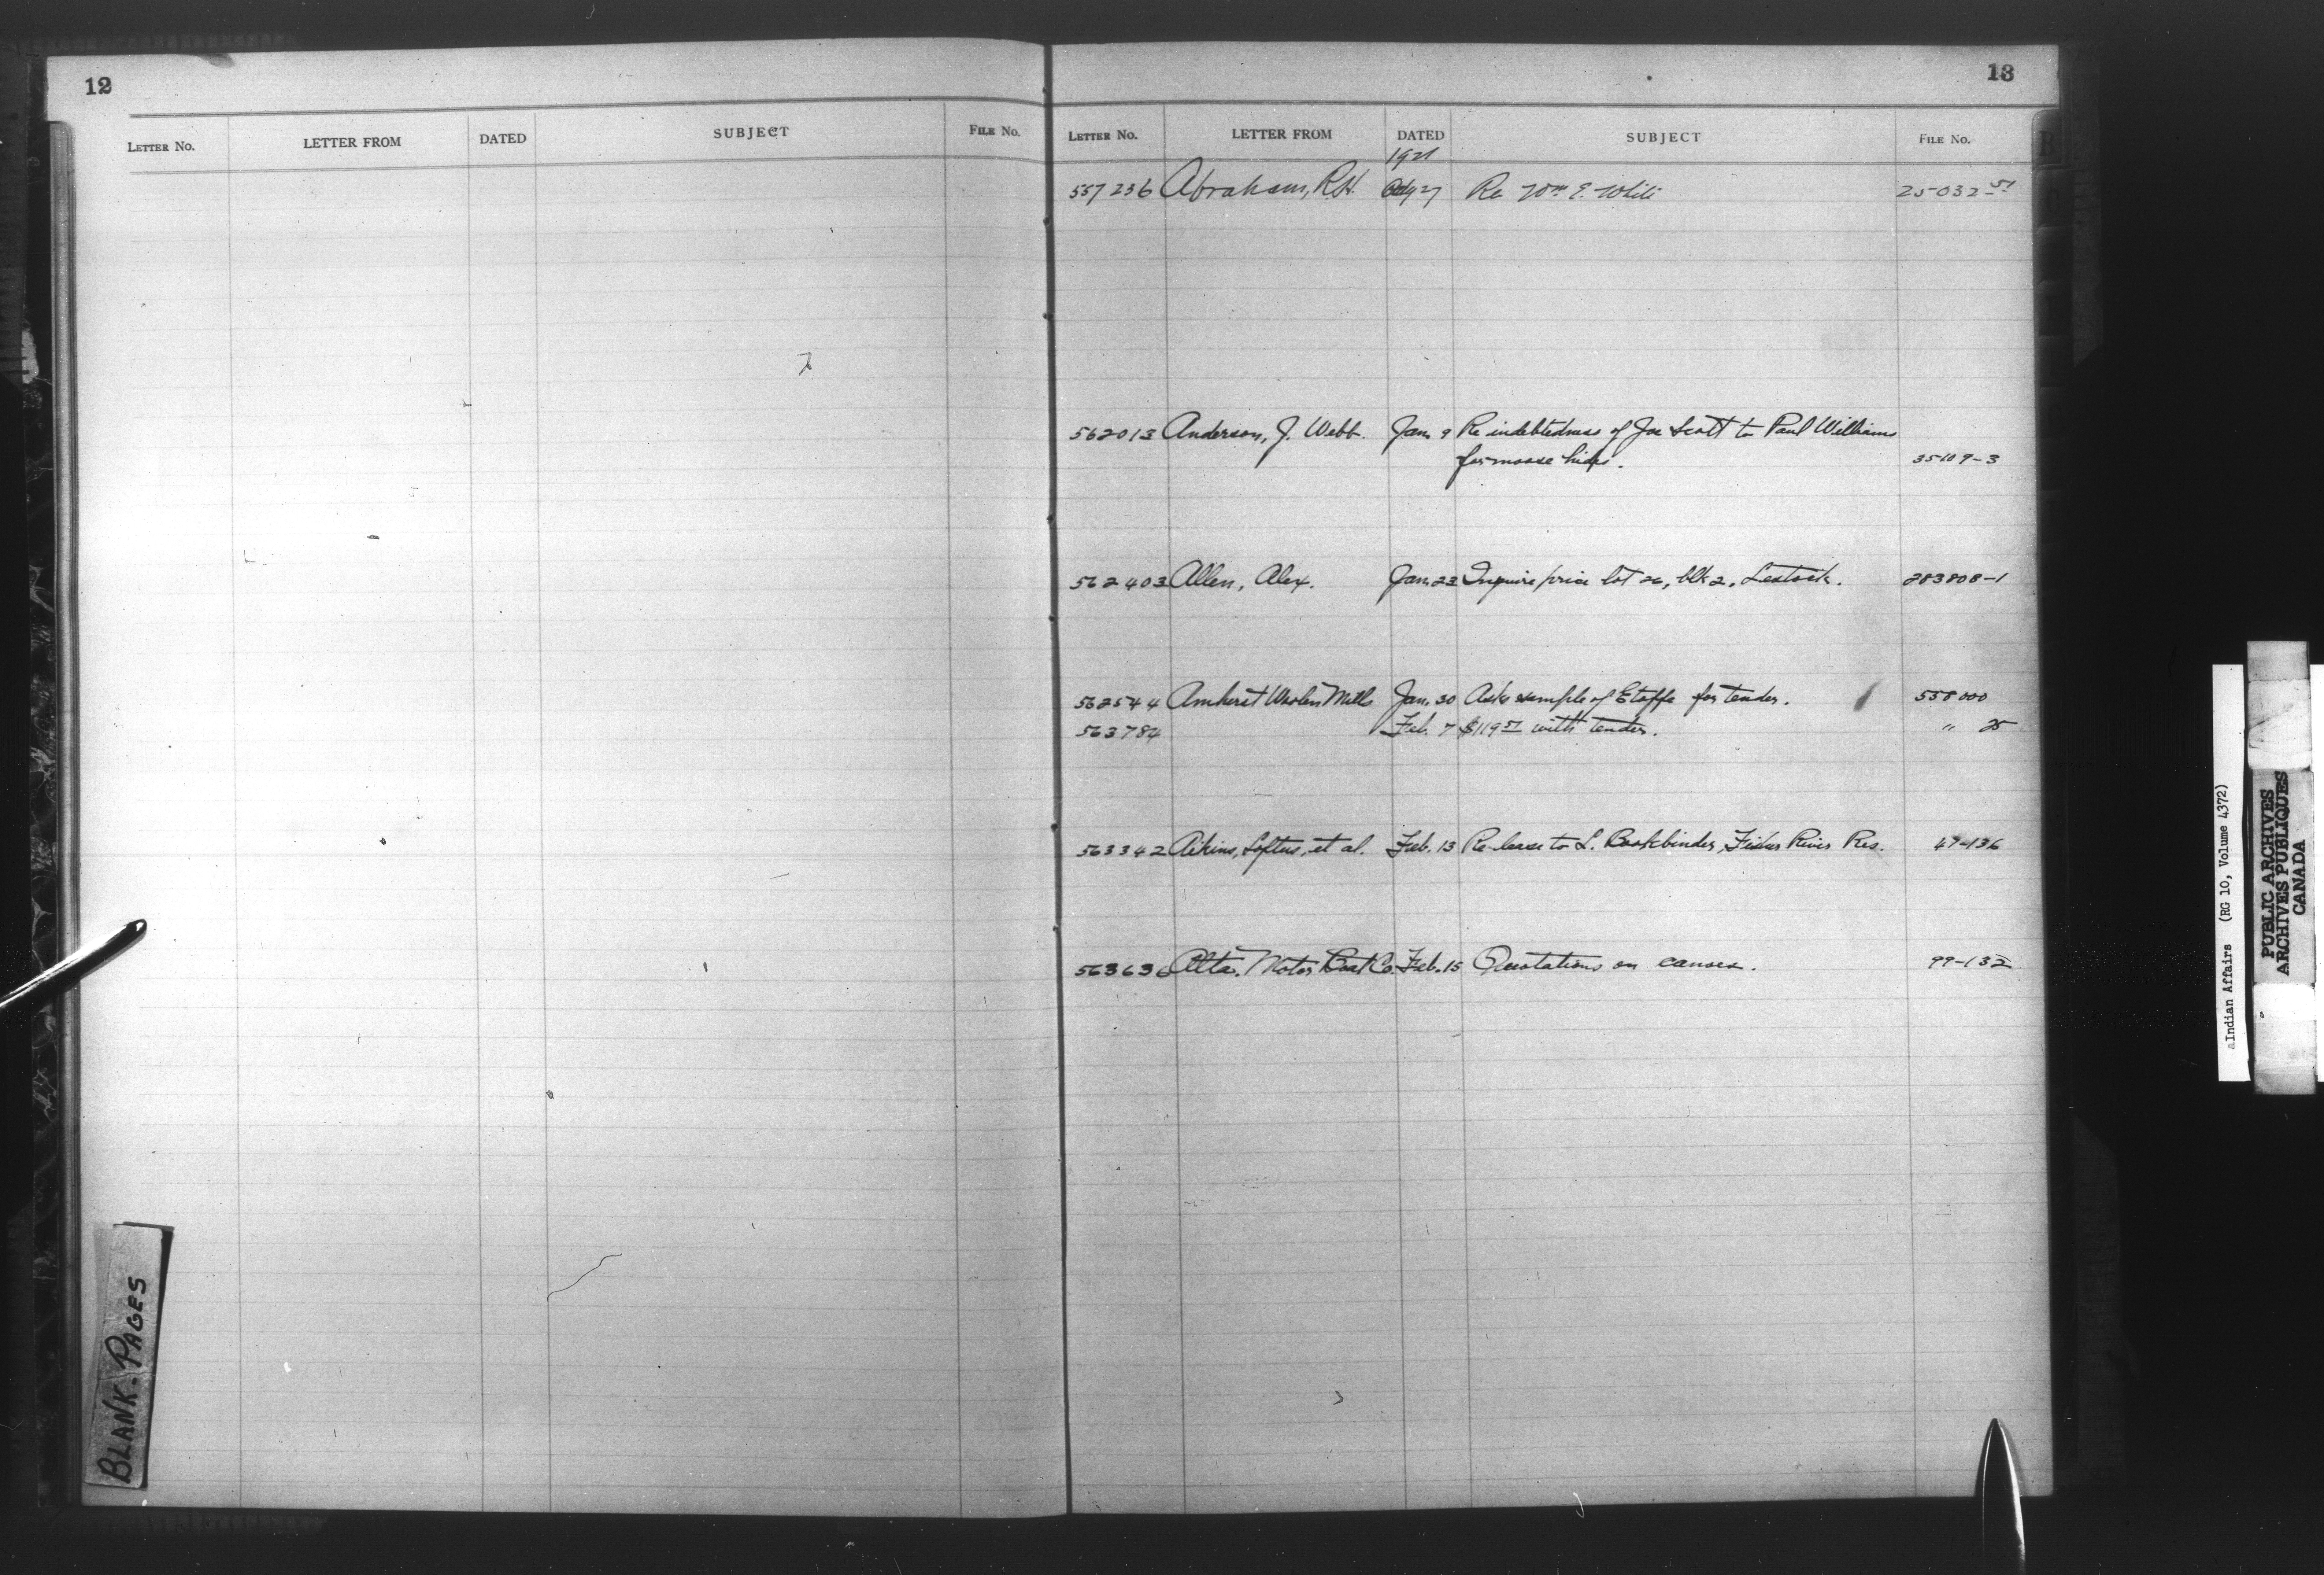 12
LETTER NO. LETTER FROM DATED SUBJECT FILE NO.
BLANK. PAGES
13
LETTER NO. LETTER FROM DATED SUBJECT FILE NO.
1921
557236 Abraham, R.H. 27 Re Wm E. White 25-032-51
562013 Anderson, J. Webb. Jan. 9 Re indebtedness of Joe Scott to Paul Williams
for moose hides. 35109-3
562403 Allen, Alex. Jan. 23 Inquire price lot 26, blk 2, Lestock. 283808-1
562544 Amherst Woolen Mills Jan. 30 Asks sample of Etoffe for tender. 558000
563784 Feb. 7 $119.51 with tender. " 25
563342 Aikins, Loftus, et al. Feb. 13 Re lease to L. Bookbinder, Fisher River Res. 47-136
563636 Alta. Motor Boat Co. Feb. 15 Quotations on canoes. 99-132
B
aIndian Affairs (RG 10, Volume 4372)
PUBLIC ARCHIVES
ARCHIVES PUBLIQUES
CANADA